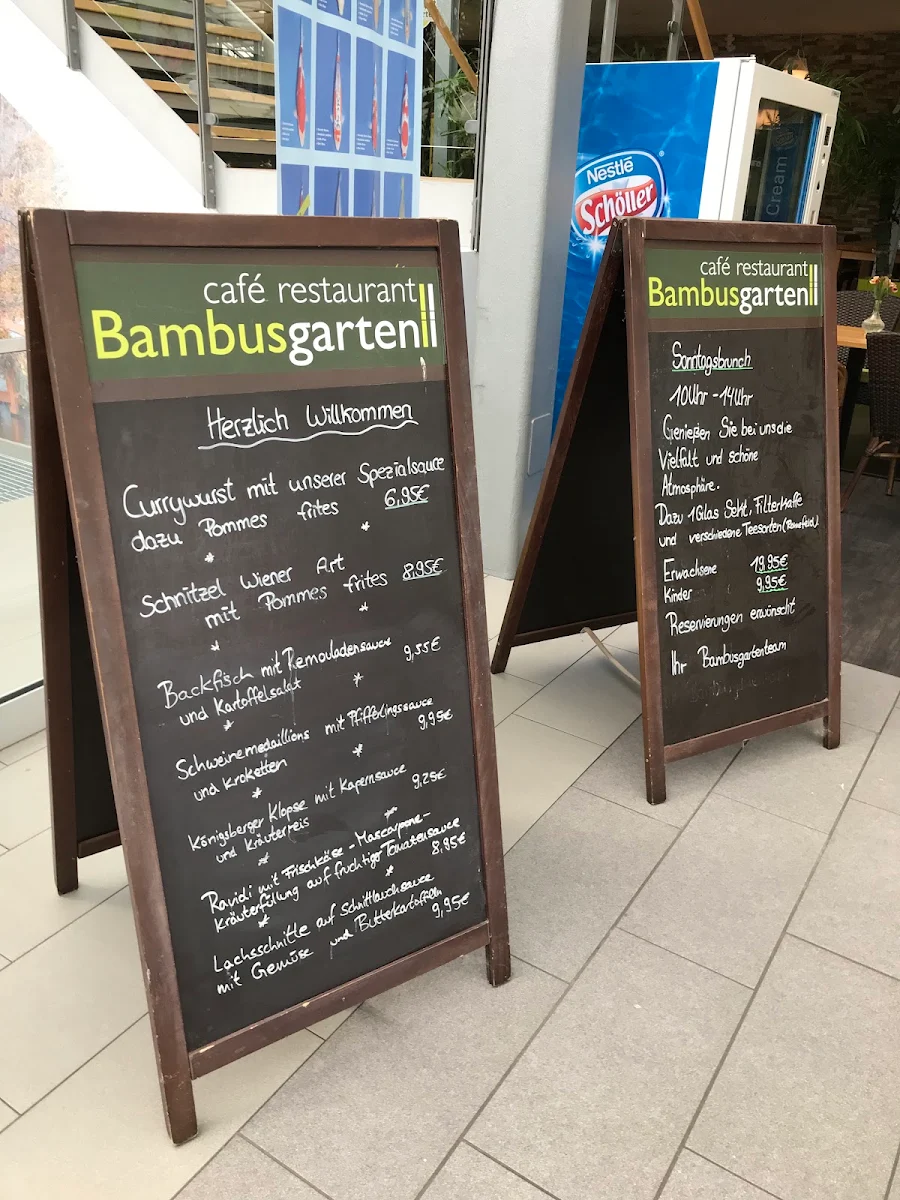 café restaurant
Bambusgarten
Herzlich Willkommen
Currywurst mit unserer Spezialsauce
dazu Pommes frites 6,95€
*
*
Schnitzel Wiener Art
mit Pommes frites 8,95€
*
*
Backfisch mit Remouladensauce
und Kartoffelsalat 9,55€
*
*
Schweinemedaillions mit Pfifferlingssauce
und Kroketten 9,95€
*
*
Königsberger Klopse mit Kapernsauce
und Kräuterreis 9,25€
*
*
Ravioli mit Frischkäse-Mascarpone-
Kräuterfüllung auf fruchtiger Tomatensauce
8,95€
*
*
Lachsschnitte auf Schnittlauchsauce
mit Gemüse und Butterkartoffeln
9,95€
Nestlé
Schöller
Cream
café restaurant
Bambusgarten
Sonntagsbrunch
10Uhr - 14Uhr
Genießen Sie bei uns die
Vielfalt und schöne
Atmosphäre.
Dazu 1 Glas Sekt, Filterkaffe
und verschiedene Teesorten (Ronnefeld)
Erwachsene 19,95€
Kinder 9,95€
Reservierungen erwünscht
Ihr Bambusgartenteam